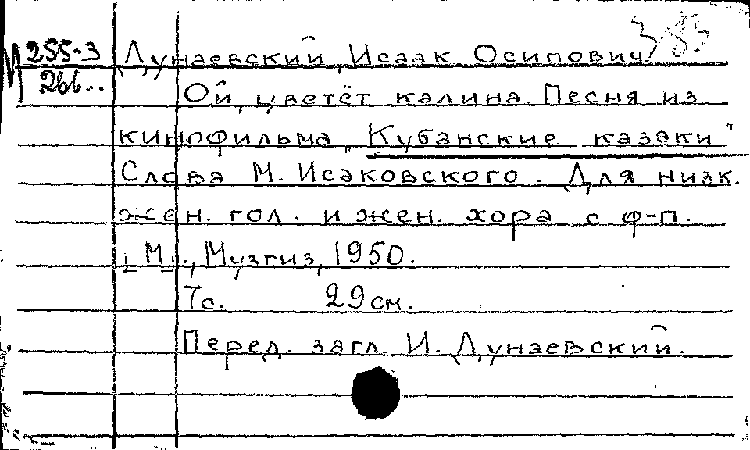 И 255-3 Дунаевский, Исаак Осипович
266.. Ой, цветёт калина. Песня из
кинофильма „Кубанские казаки"
Слова М. Исаковского. Для низк.
жен. гол. и жен. хора с ф-п.
[М.], Музгиз, 1950.
7с. 29см.
Перед загл. И. Дунаевский.